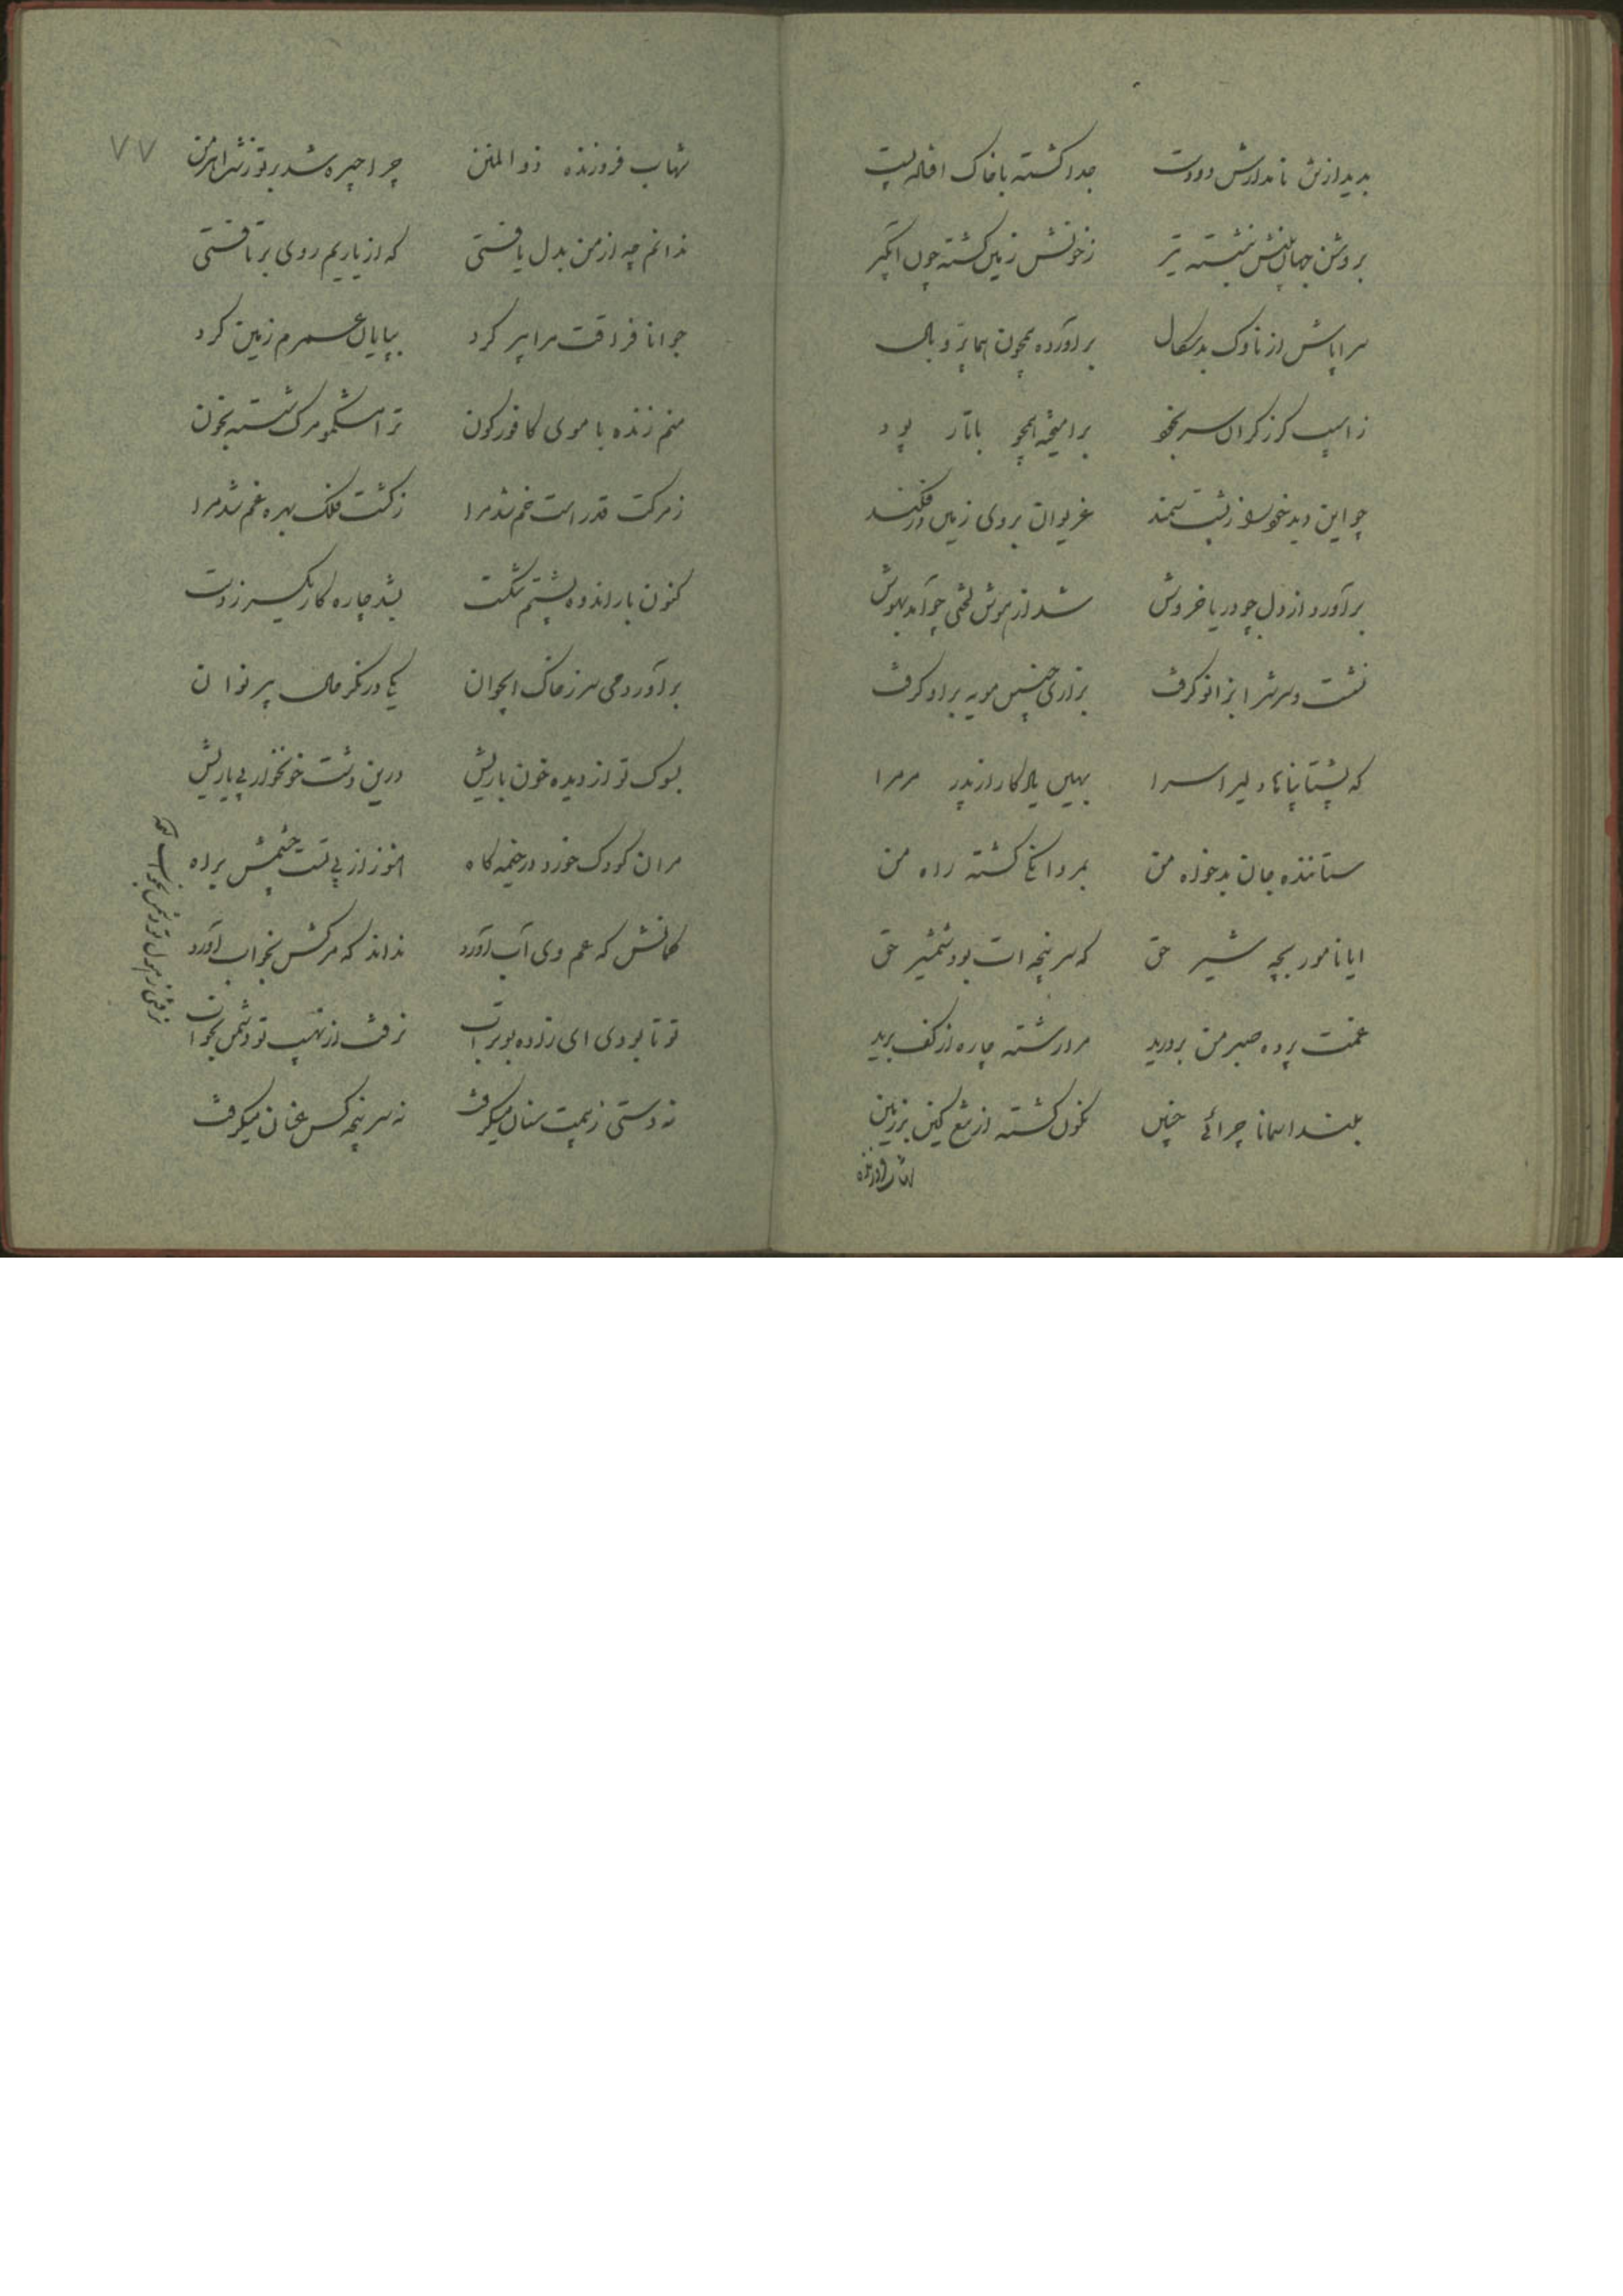 بدید از تن نامدارش دو دست جدا گشته با خاک افتاده پست
بروشن جهان بینش بنشسته تیر ز خونش زمین گشته چون آبگیر
سراپاش از ناوک بدسگال برآورده همچون هما پر و بال
ز اسیب کرز کران سر بخو برامیخته همچو با تار پود
چو این دید خود را ز پشت سمند غریوان بروی زمین در فکند
برآورد از دل چو دریا خروش شد از هوش لختی چو آمد بهوش
نشست و سرش را بزانو کرفت بزاری چنین مویه بر او کرفت
که پشتا پناها دلیرا سرا بهین یادکار از پدر مر مرا
ستاننده جان بدخواه من بمردانکی کشته راه من
ایا نامور بچه شیر حق که سرپنجه ات بود شمشیر حق
غمت پرده صبر من بردرید مرا رشته چاره از کف برید
بلند اسمانا چرائی چنین نکون کشته از تیغ کین بر زمین
شهاب فروزنده ذوالمنن چرا چیره شد بر تو زشت اهرمن
۷۷
ندانم چه از من بدل یافتی که از یاریم روی برتافتی
جوانا فراقت مرا پیر کرد بپایان عمرم زمین کرد
منم زنده با موی کافورکون ترا مشکمو مرک شسته بخون
ز مرکت قد راست خم شد مرا ز کشت فلک بهره غم شد مرا
کنون بار اندوه پشتم شکست بشد چاره کار یکسر ز دست
برآور دمی سر ز خاک ایجوان یکی در نکر حال پیر نوان
بسوک تو از دیده خون باریش درین دشت خونخوار بی یاریش
مر ان کودک خورد در خیمه کاه هنوز از پی تست چشمش براه
کمانش که عم وی آب آورد نداند که مرکش بخواب آورد
تو تا بودی ای زاده بوتراب نرفت از نهیب تو دشمن بخواب
نه دستی ز بیمت سنان میکرفت نه سرپنجه کس عنان میکرفت
نرفتی ز هول تو دشمن بخواب